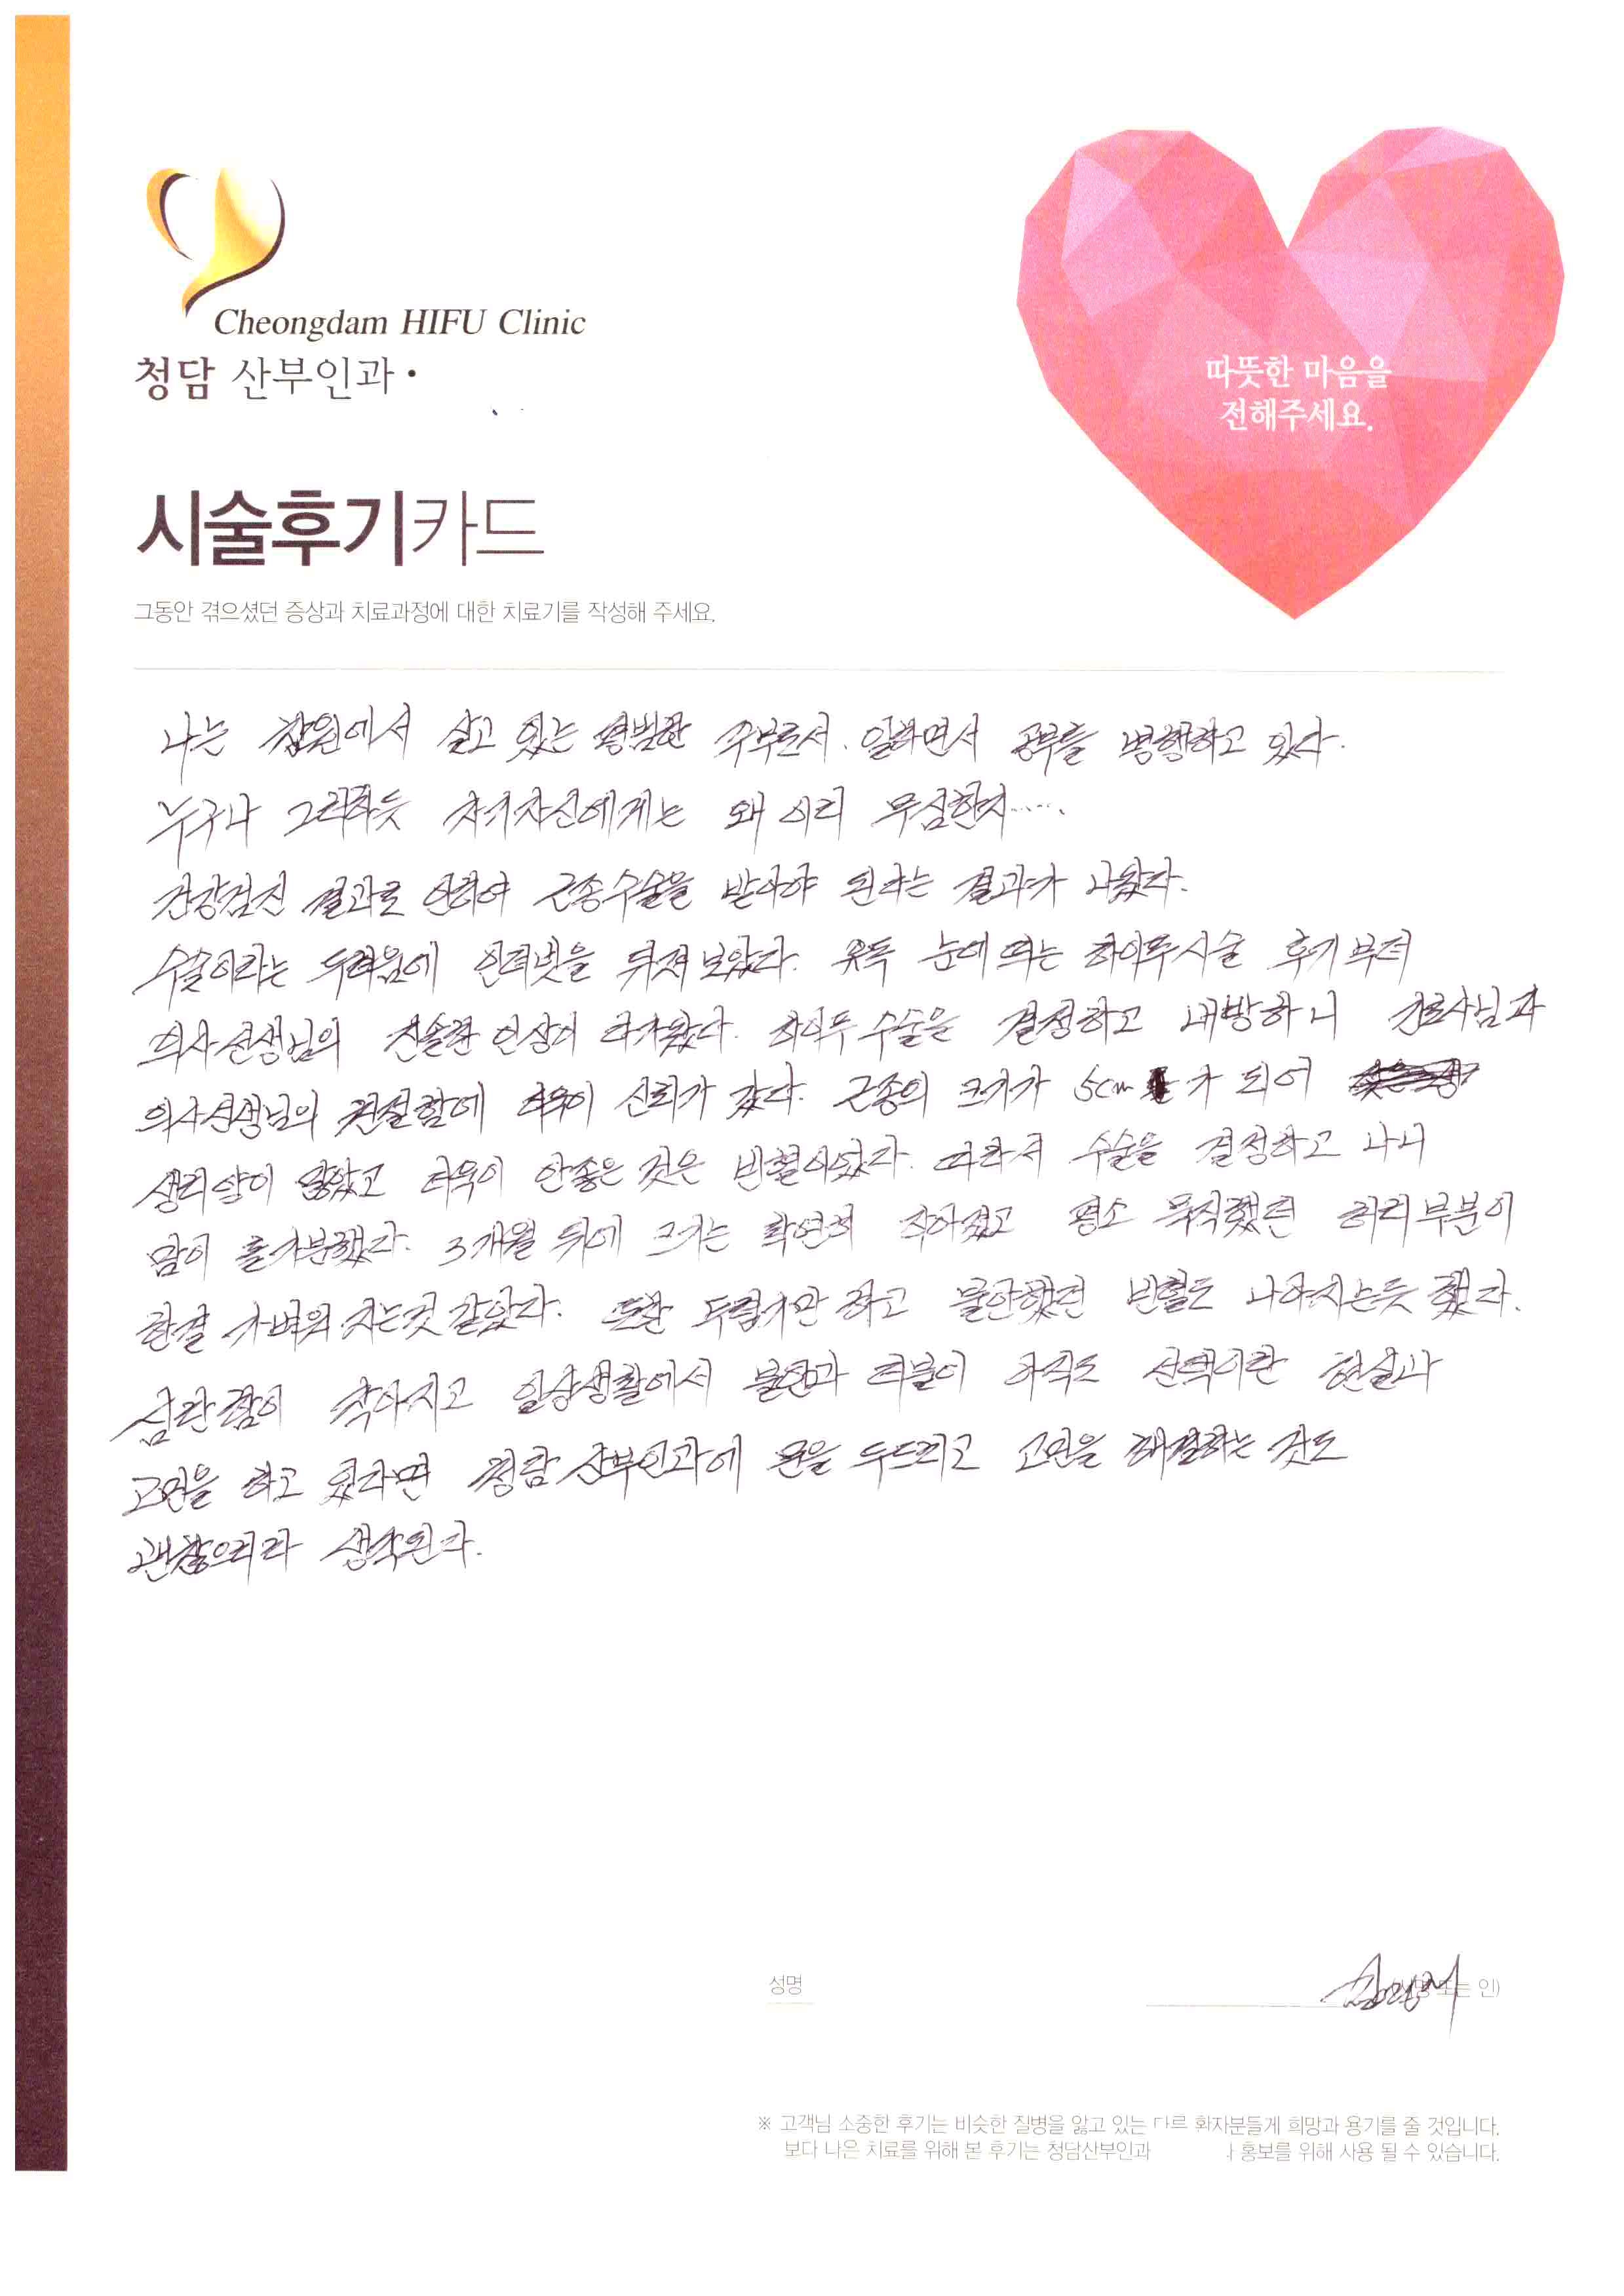 Cheongdam HIFU Clinic
청담 산부인과
따뜻한 마음을
전해주세요.
시술후기카드
그동안 겪으셨던 증상과 치료과정에 대한 치료기를 작성해 주세요.
나는 창원에서 살고 있는 평범한 주부로서. 일하면서 공부를 병행하고 있다.
누구나 그러하듯 자기자신에게는 왜 이리 무심한지.....
건강검진 결과로 인하여 근종수술을 받아야 된다는 결과가 나왔다.
수술이라는 두려움에 인터넷을 뒤져 보았다. 유독 눈에 띄는 하이푸시술 후기부터
의사선생님의 진솔한 인상이 다가왔다. 하이푸 수술을 결정하고 내방하니 간호사님과
의사선생님의 친절함에 더욱이 신뢰가 갔다. 근종의 크기가 5cm 가 되어
생리양이 많았고 더욱이 안좋은 것은 빈혈이었다. 따라서 수술을 결정하고 나니
맘이 홀가분했다. 3개월 뒤에 크기는 확연히 작아졌고 평소 묵직했던 허리부분이
한결 가벼워 지는것 같았다. 또한 두렵기만 하고 불안했던 빈혈도 나아지는듯 했다.
심란함이 작아지고 일상생활에서 불안과 더불어 아직도 선택이란 현실과
고민을 하고 있다면 청담산부인과에 문을 두드리고 고민을 해결하는 것도
괜찮으리라 생각된다.
성명
인)
※ 고객님 소중한 후기는 비슷한 질병을 앓고 있는 다른 환자분들게 희망과 용기를 줄 것입니다.
보다 나은 치료를 위해 본 후기는 청담산부인과 홍보를 위해 사용 될 수 있습니다.